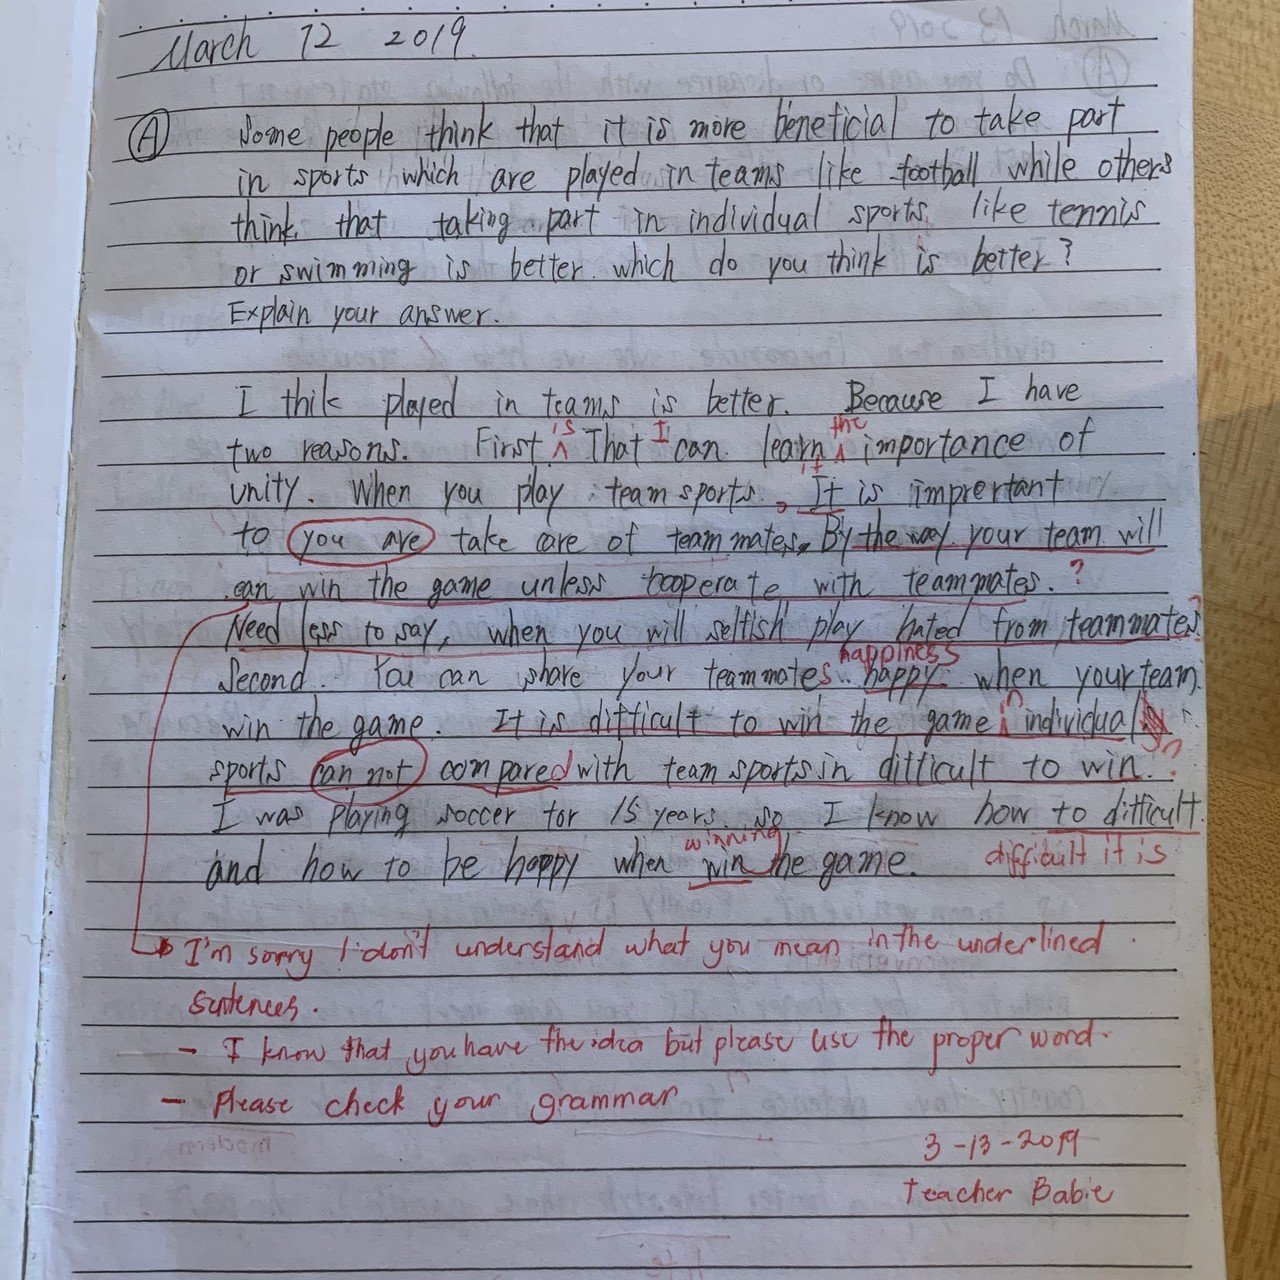 March 12 2019.
Ⓐ Some people think that it is more beneficial to take part
in sports which are played in teams like football while others
think that taking part in individual sports like tennis
or swimming is better. which do you think is better?
Explain your answer.
I thik played in teams is better. Because I have
is I the
two reasons. First. ^ That can learn ^ importance of
it
unity. When you play team sports , It is imprertant
to you are take care of team mates. By the way your team will
can win the game unless cooperate with teammates. ?
Need less to say, when you will selfish play hated from teammates?
happiness
Second. You can share your teammates happy when your team
in
win the game. It is difficult to win the game individual
sports can not compared with team sports in difficult to win. ?
I was playing soccer for 15 years. so I know how to difficult
winning difficult it is
and how to be happy when win the game.
I'm sorry I don't understand what you mean in the underlined
sentences.
- I know that you have the idea but please use the proper word.
- Please check your grammar
3-13-2019
Teacher Babie